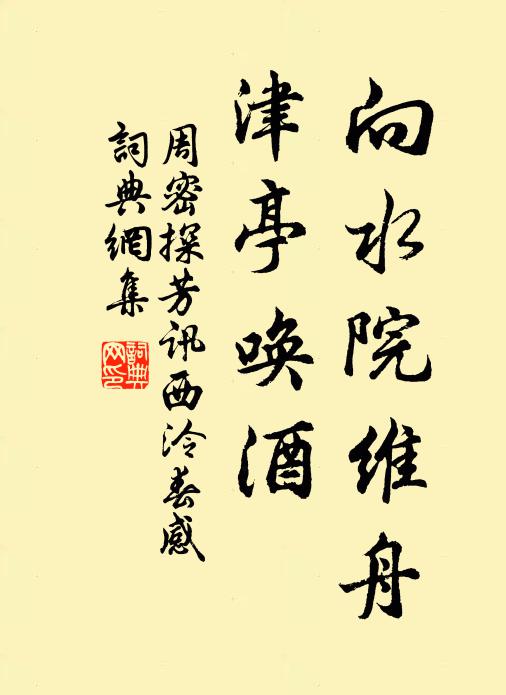 向水院維舟
津亭喚酒
周密探芳訊西泠春感
詞典網集
詞典網印